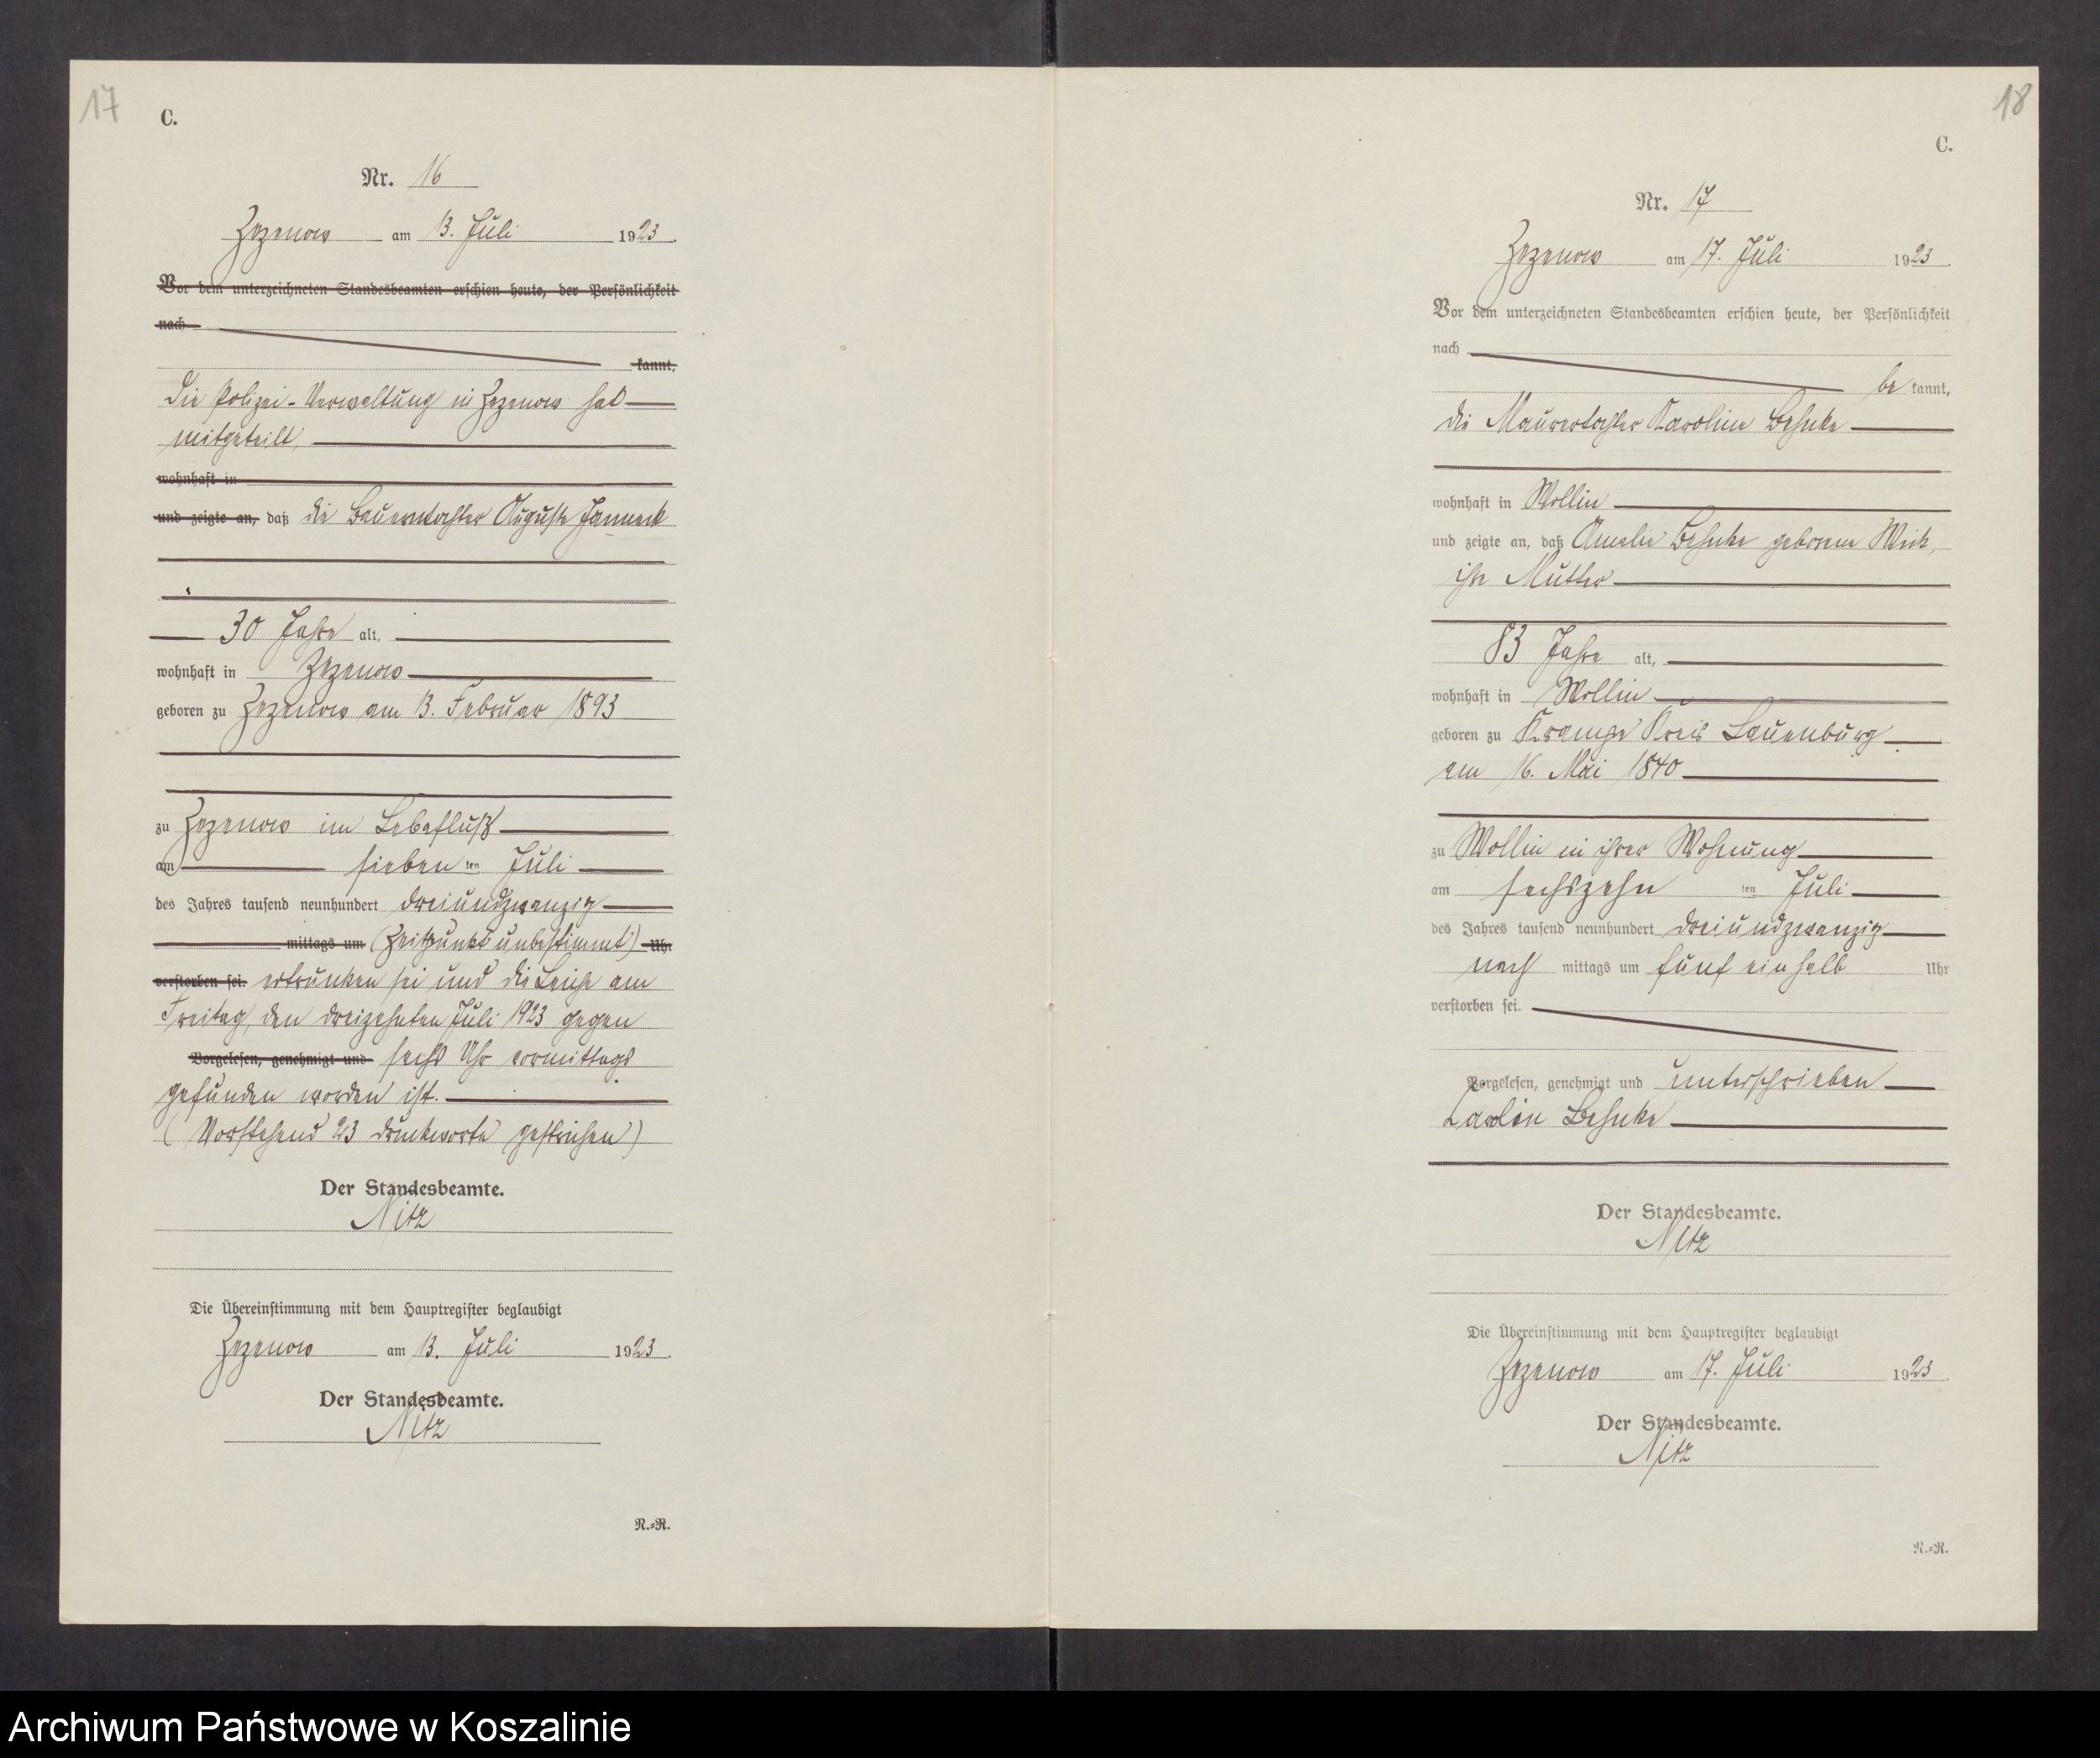 17
C.
Nr. 16
Zezenow am 13. Juli 1923.
Vor dem unterzeichneten Standesbeamten erschien heute, der Persönlichkeit
nach
kannt,
die Polizei-Verwaltung in Zezenow hat
mitgeteilt,
wohnhaft in
und zeigte an, daß die Bauerntochter Auguste Janneck
30 Jahre alt,
wohnhaft in Zezenow
geboren zu Zezenow am 13. Februar 1893
zu Zezenow im Lebafluß
am sieben ten Juli
des Jahres tausend neunhundert dreiundzwanzig
mittags um (Zeitpunkt unbestimmt) Uhr
verstorben sei. ertrunken sei und die Leiche am
Freitag, den dreizehnten Juli 1923 gegen
Vorgelesen, genehmigt und sechs Uhr vormittags
gefunden worden ist.
(Vorstehend 23 Druckworte gestrichen)
Der Standesbeamte.
Nitz
Die Übereinstimmung mit dem Hauptregister beglaubigt
Zezenow am 13. Juli 1923.
Der Standesbeamte.
Nitz
N.=R.
18
C.
Nr. 17
Zezenow am 17. Juli 1923.
Vor dem unterzeichneten Standesbeamten erschien heute, der Persönlichkeit
nach
be kannt,
die Maurertochter Karoline Behnke
wohnhaft in Wollin
und zeigte an, daß Amalie Behnke geborene Wick,
ihre Mutter
83 Jahre alt,
wohnhaft in Wollin
geboren zu Krampe Kreis Lauenburg
am 16. Mai 1840
zu Wollin in ihrer Wohnung
am sechszehn ten Juli
des Jahres tausend neunhundert dreiundzwanzig
nach mittags um fünf ein halb Uhr
verstorben sei.
Vorgelesen, genehmigt und unterschrieben
Karolin Behnke
Der Standesbeamte.
Nitz
Die Übereinstimmung mit dem Hauptregister beglaubigt
Zezenow am 17. Juli 1923.
Der Standesbeamte.
Nitz
N.=R.
Archiwum Państwowe w Koszalinie